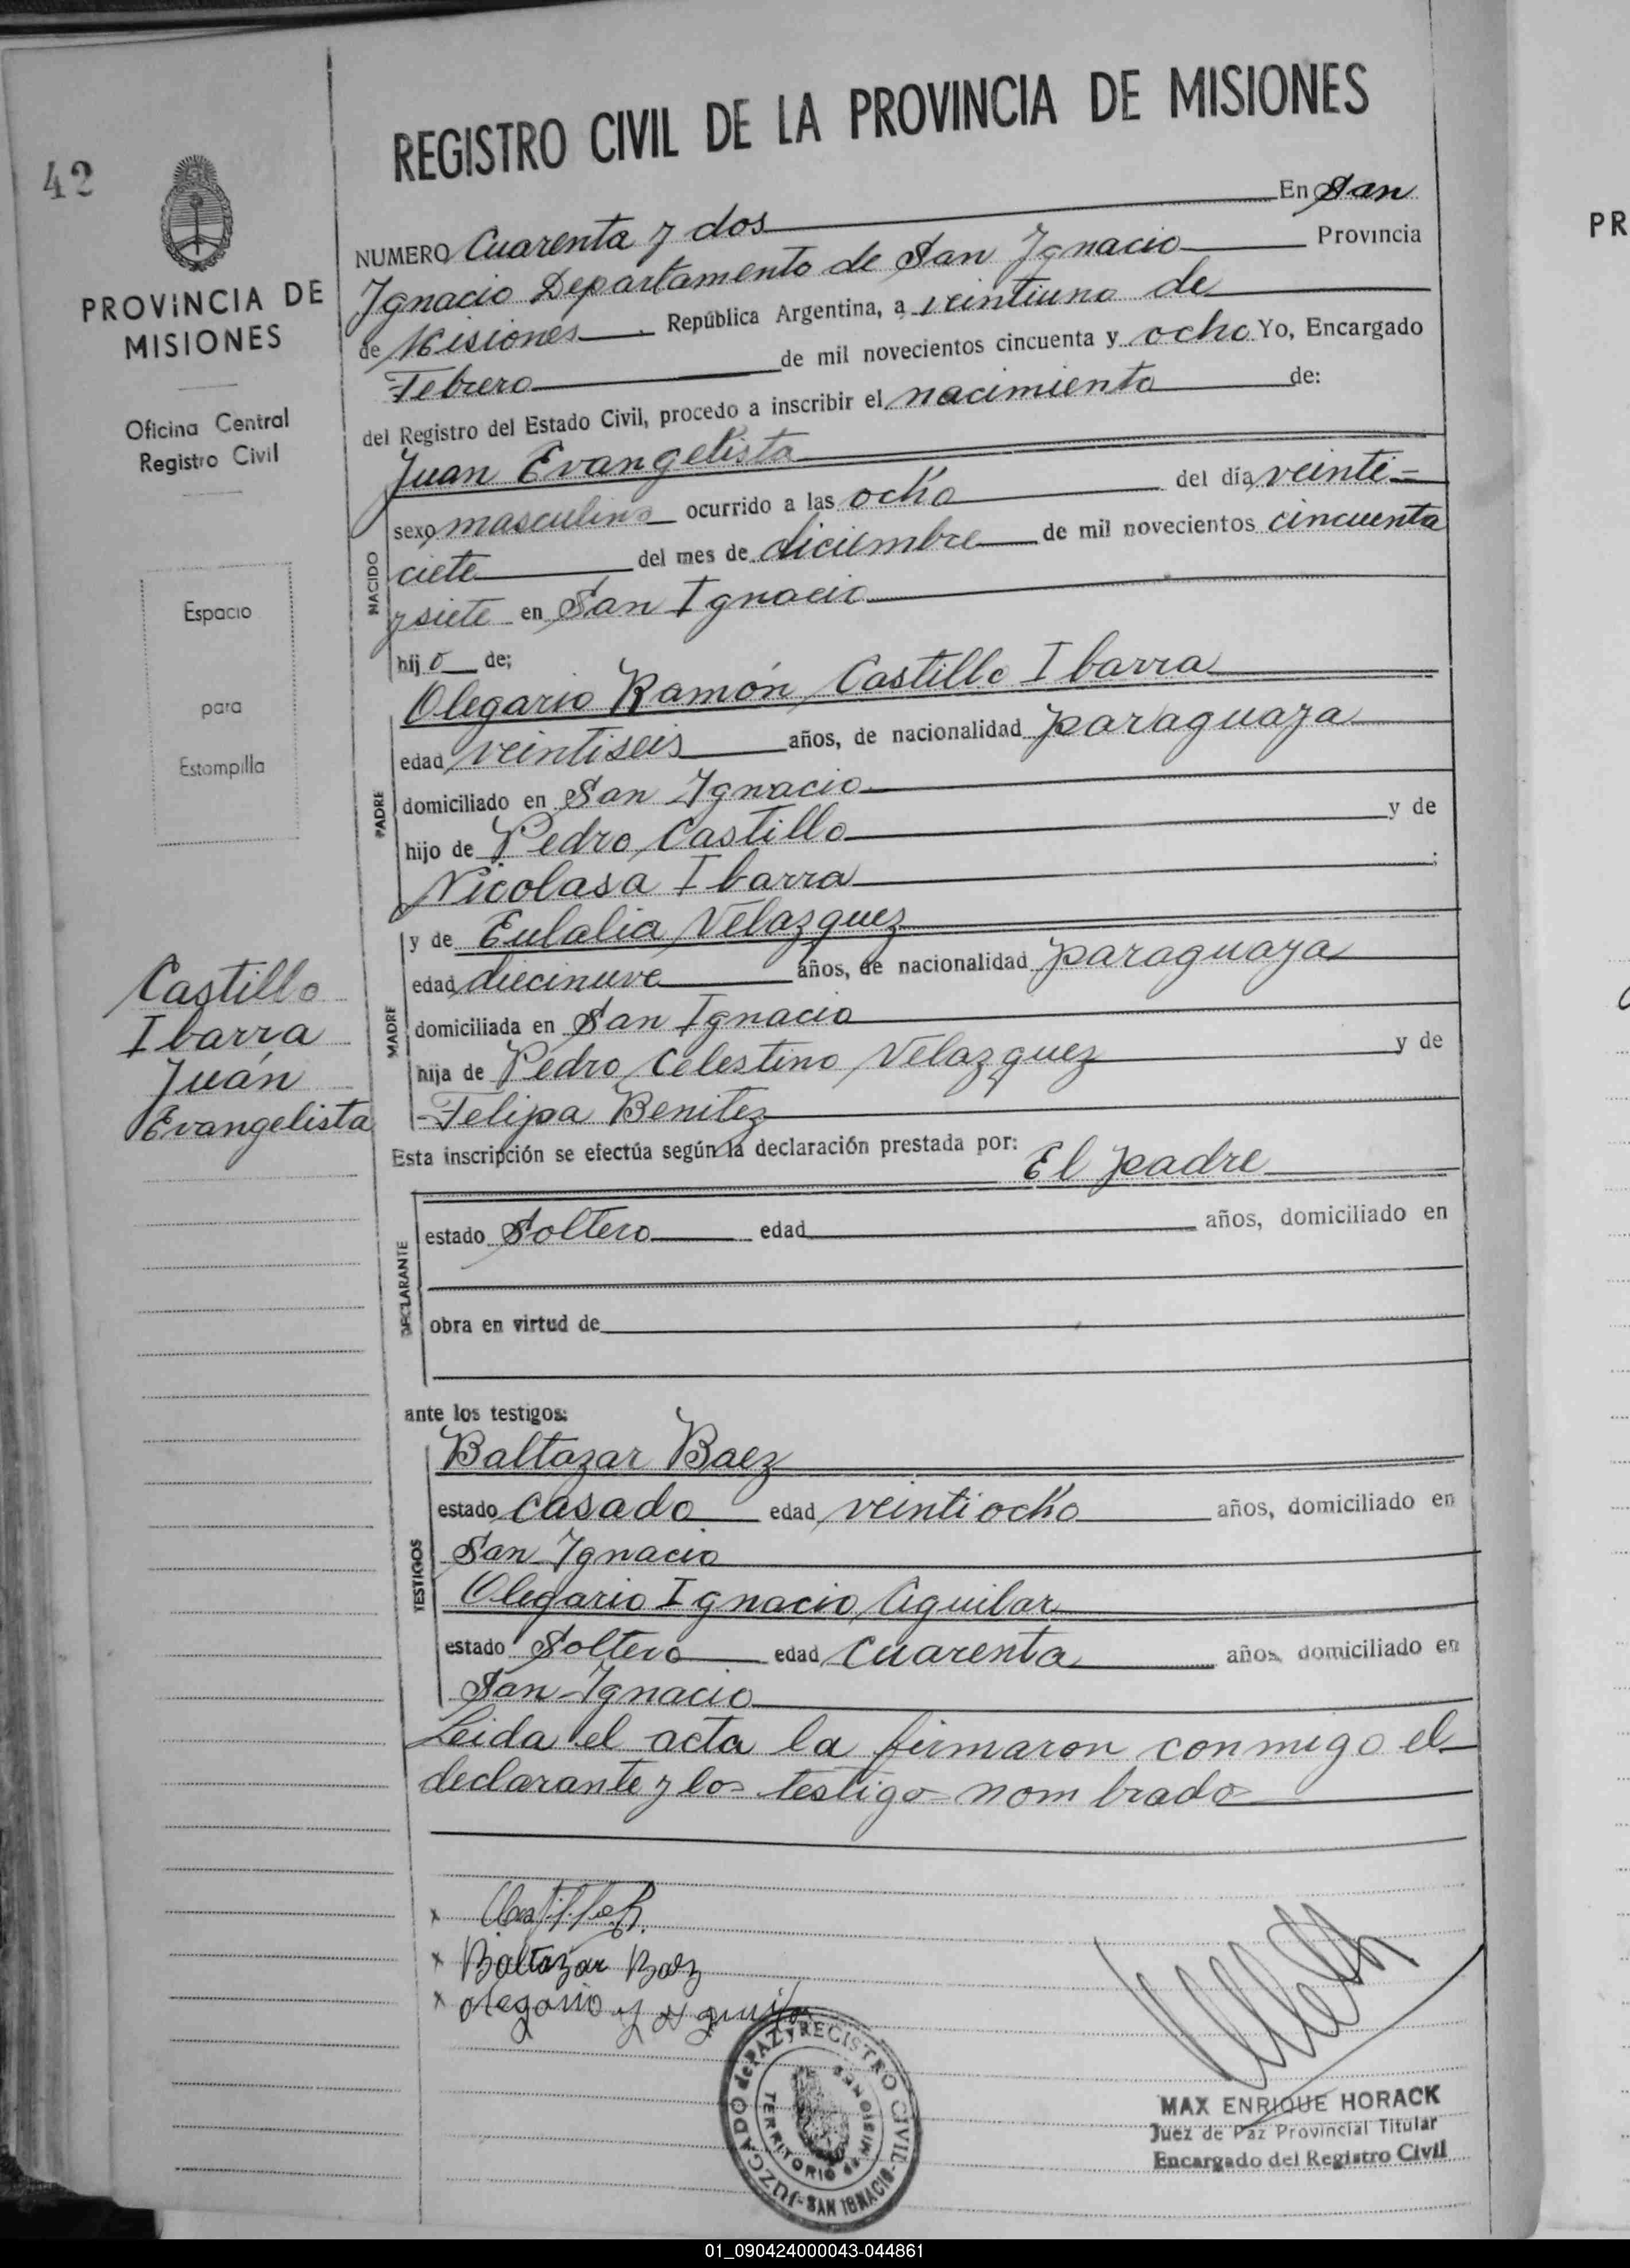 REGISTRO CIVIL DE LA PROVINCIA DE MISIONES
42
PROVINCIA DE
MISIONES
Oficina Central
Registro Civil
Espacio
para
Estampilla
Castillo
Ibarra
Juan
Evangelista
NUMERO Cuarenta y dos En San
Ignacio Departamento de San Ignacio Provincia
de Misiones República Argentina, a veintiuno de
Febrero de mil novecientos cincuenta y ocho Yo, Encargado
del Registro del Estado Civil, procedo a inscribir el nacimiento de:
Juan Evangelista
NACIDO
sexo masculino ocurrido a las ocho del día veinti=
ciete del mes de diciembre de mil novecientos cincuenta
y siete en San Ignacio
hijo de;
Olegario Ramón Castillo Ibarra
PADRE
edad veintiseis años, de nacionalidad paraguaya
domiciliado en San Ignacio
hijo de Pedro Castillo y de
Nicolasa Ibarra ;
MADRE
y de Eulalia Velazquez
edad diecinueve años, de nacionalidad paraguaya
domiciliada en San Ignacio
hija de Pedro Celestino Velazquez y de
Felipa Benitez
Esta inscripción se efectúa según la declaración prestada por: El padre
DECLARANTE
estado Soltero edad años, domiciliado en
obra en virtud de
ante los testigos:
TESTIGOS
Baltazar Baez
estado casado edad veintiocho años, domiciliado en
San Ignacio
Olegario Ignacio Aguilar
estado Soltero edad cuarenta años, domiciliado en
San Ignacio
Leida el acta la firmaron conmigo el
declarante y los testigos nombrados
x
x Baltazar Baez
x Olegario
JUZGADO de PAZ y REGISTRO CIVIL
TERRITORIO de MISIONES
SAN IGNACIO
MAX ENRIQUE HORACK
Juez de Paz Provincial Titular
Encargado del Registro Civil
PR
01_090424000043-044861